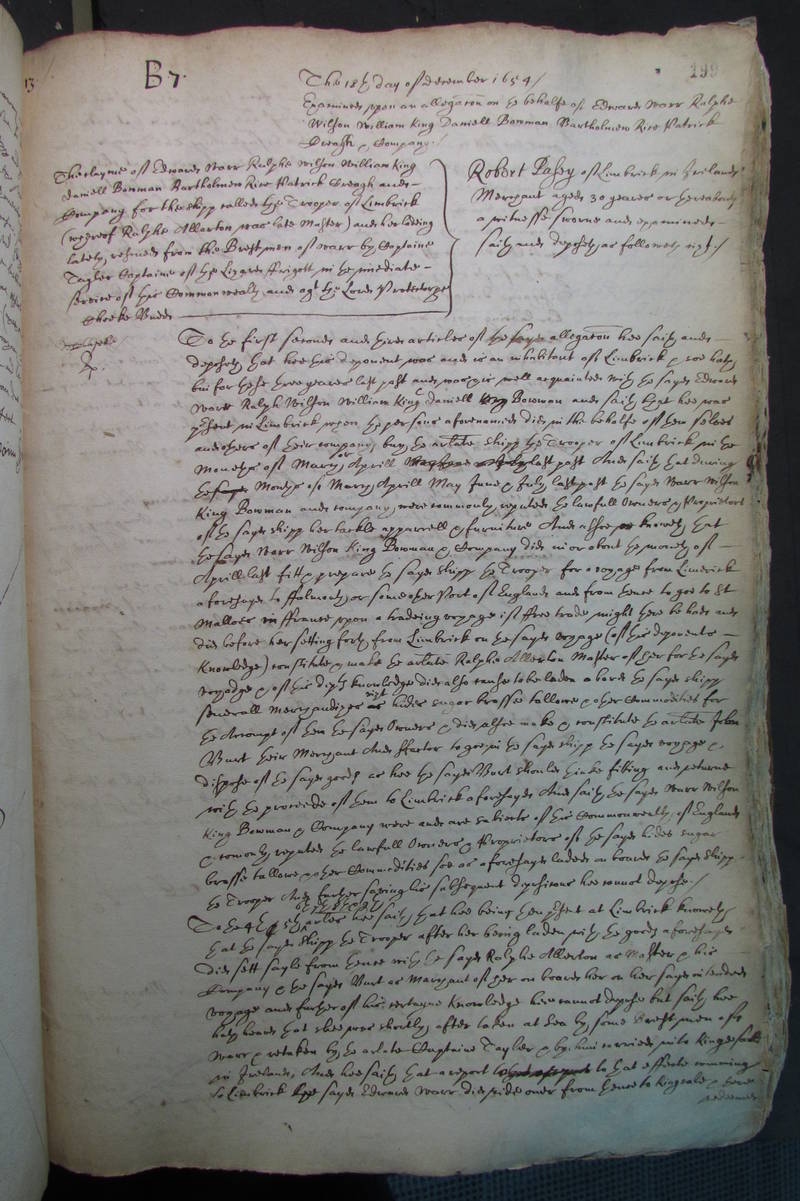 13
B 7.
199
The 18th day of December 1654 /
Examined upon an allegacon on the behalfe of Edward Warr Ralphe
Wilson William King Daniell Bowman Bartholmew Rice Patrick
Creagh & Company /
The clayme of Edward Warr Ralphe Wilson William King
daniell Bowman Bartholmew Rice Patrick Creagh and
Company for the shipp called the Trooper of Limbrick
(whereof Ralphe Allerton was late Master) and her lading
lately rescued from the Brest men of warr by Captaine
Tayler Captaine of the ffrigott in the imediate
service of this Commonwealth and agt the Lord Protector
Cheeke Budd
Robert Pasey of Limbrick in Ireland
Merchant aged 30 yeares or thereabouts
a witnesse sworne and examined
saith and deposeth as followeth vizt. /
To the first second and third articles of the sayd allegacon hee saith and
deposeth that hee this deponent was and is an inhabitant of Limbrick & soe hath
bin for these three yeares last past and was & is well acquainted with the sayd Edward
Warr Ralph Wilson William King daniell Bowman and saith that hee was
present in Limbrick when the persons aforenamed did in the behalfe of them selves
and others of their company, buy the arlate shipp the Trooper of Limbrick in the
Moneths of March or Aprill last past And saith that during
the Moneths of March Aprill May June & July last past the sayd Warr Wilson
King Bowman and company were commonly reputed the lawfull Owners & Proprietors
of the sayd shipp her tackle apparrell & furniture And alsoe knoweth that
the sayd Warr Wilson King Bowman & Company did in or about the moneth of
Aprill last fitt & prepare the sayd shipp the Trooper for a voyage from Limerick
aforesayd to ffalmouth or some other Port of England and from thence to goe to St
Malloes in ffrance upon a tradeing voyage if ffree trade might there be had and
did before her setting forth from Limbrick on the sayd voyage (of this deponents
knowledge) constitute & make the arlate Ralphe Allerton Master of her for the sayd
voyadge & of his depts knowledge did also cause to be laden aboard the sayd shipp
severall Merchandizes vizt hides sugar brasse tallowe & other Commodities for
the Accompt of them the sayd Owners & did alsoe make & constitute the arlate John
Burt their Merchant And ffactor to goe in the sayd shipp the sayd voyage &
dispose of the sayd goods as hee the sayd Burt should thinke fitting and returne
with the proceede of them to Limbrick aforesayd And saith the sayd Warr Wilson
King Bowman & Company were and are subiects of this Commonwealth of England
& comonly reputed the lawfull Owners & Proprietors of the sayd hides sugar
brasse tallowe & other Commodities soe as aforesayd laden on board the sayd shipp
the Trooper And further saving his subsequent deposicons hee cannot depose /
To the 4th 5th arles hee saith that hee being then present at Limbrick knoweth
that the sayd shipp the Trooper after her being laden with the goods aforesayd
did sett sayle from thence with the sayd Ralphe Allerton as Master & his
Company & the sayd Burt as Marchant of her on board her on her sayd intended
voyage and further of his certayne knowledge hee cannot depose but saith hee
hath heard that shee was shortly after taken at Sea by some Brest men of
warr & retaken by the arlate Captaine Tayler & by him carried into Kingsale
in Ireland, And hee saith that a report to that effecte comming
to Limbrick the sayd Edward Warr did ride over from thence to Kingsale & there
redeemed